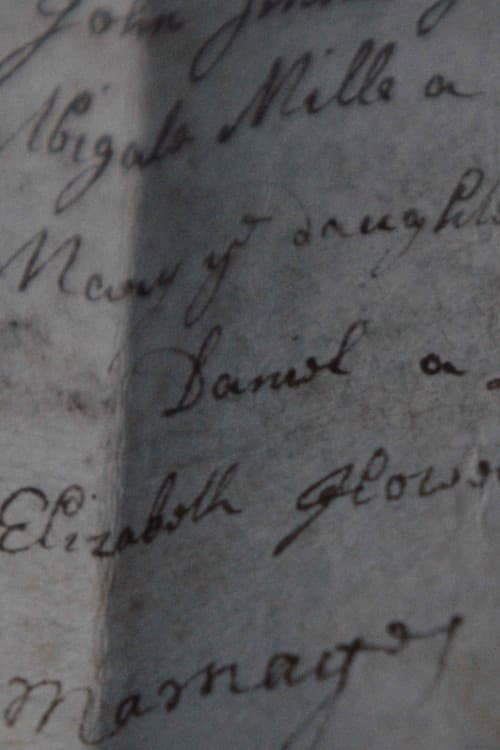 John
Abigale Mille a
Mary yᵉ daughte
Daniel a
Elizabeth Glower
Marriages